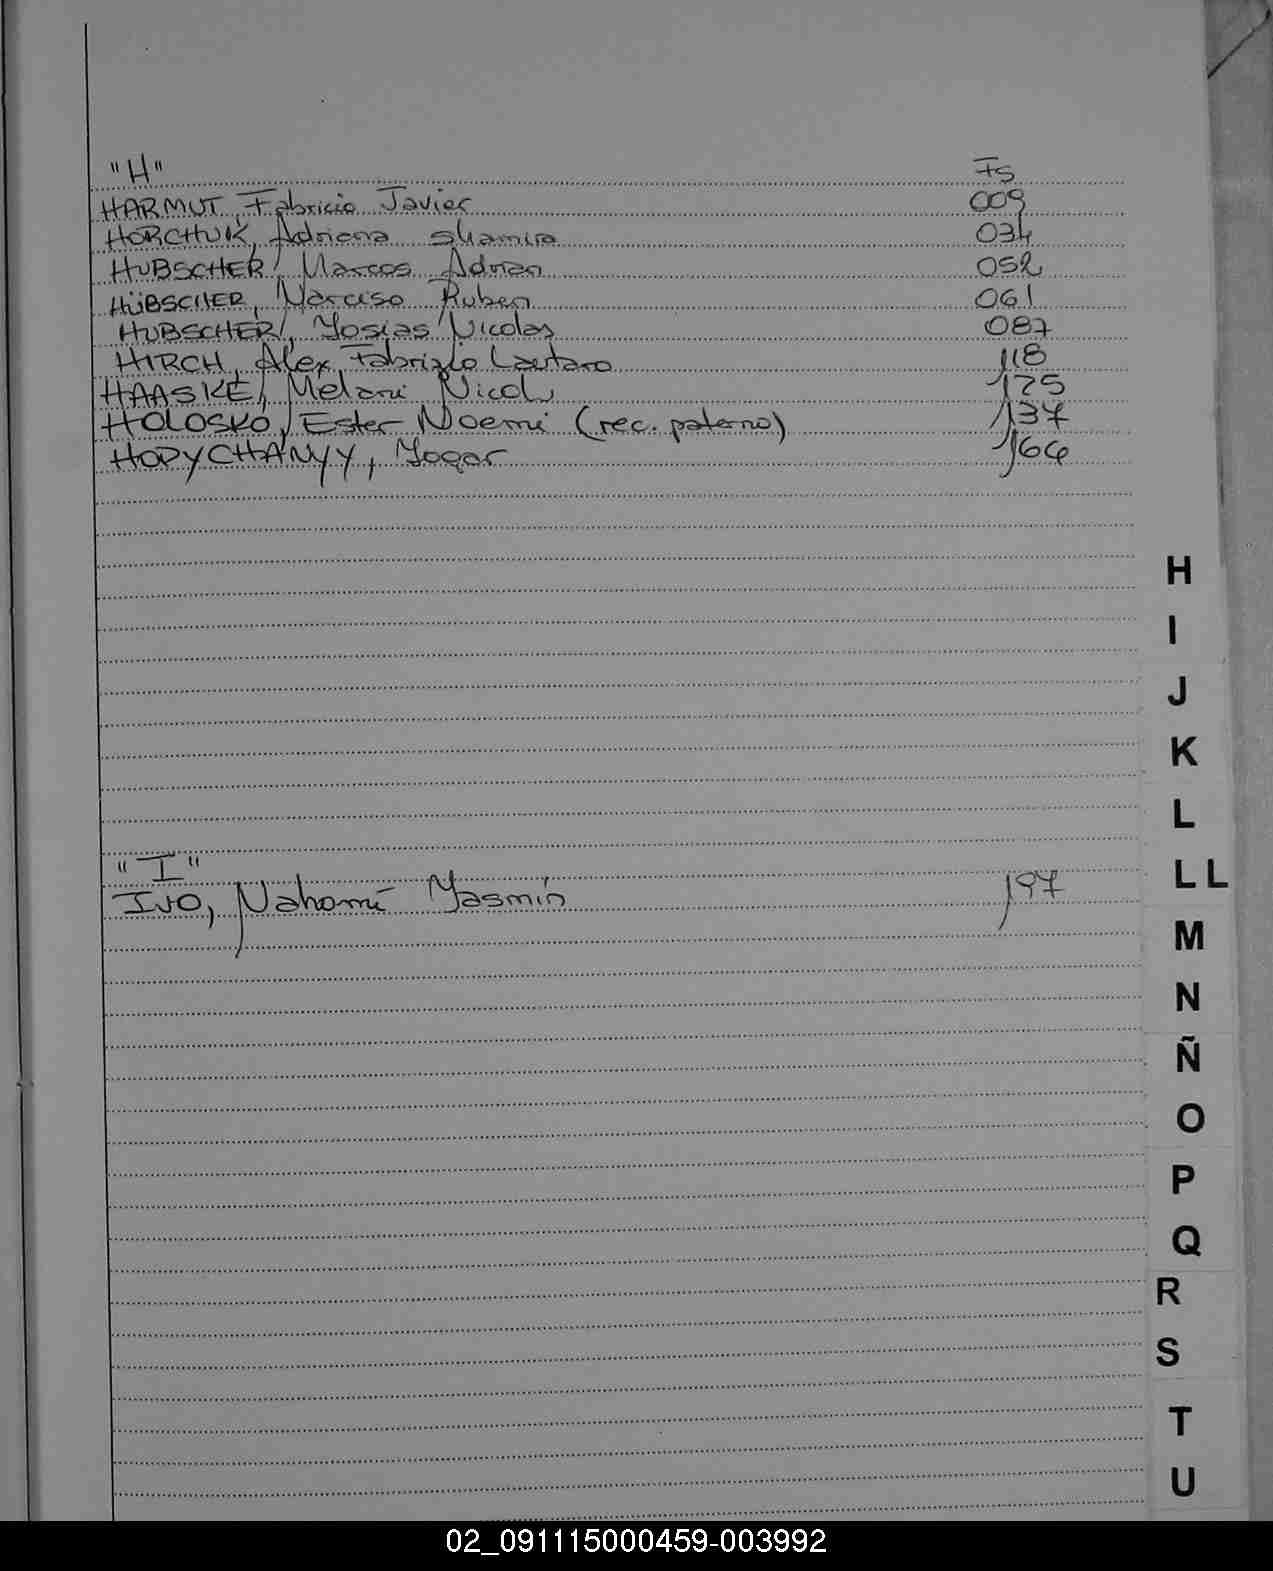 "H" Fs
HARMUT, Fabricio Javier 009
HORCHUK, Adriana Shamira 034
HUBSCHER, Marcos Adrian 052
HÜBSCHER, Narciso Ruben 061
HUBSCHER, Yosias Nicolas 087
HIRCH, Alex Fabrizio Lautaro 118
HAASKE, Melani Nicol 125
HOLOSKO, Ester Noemi (rec. paterno) 137
HODYCHANYY, Yogar 164
H
I
J
K
L
"I"
LL
IVO, Nahomí Yasmín 197
M
N
Ñ
O
P
Q
R
S
T
U
02_091115000459-003992